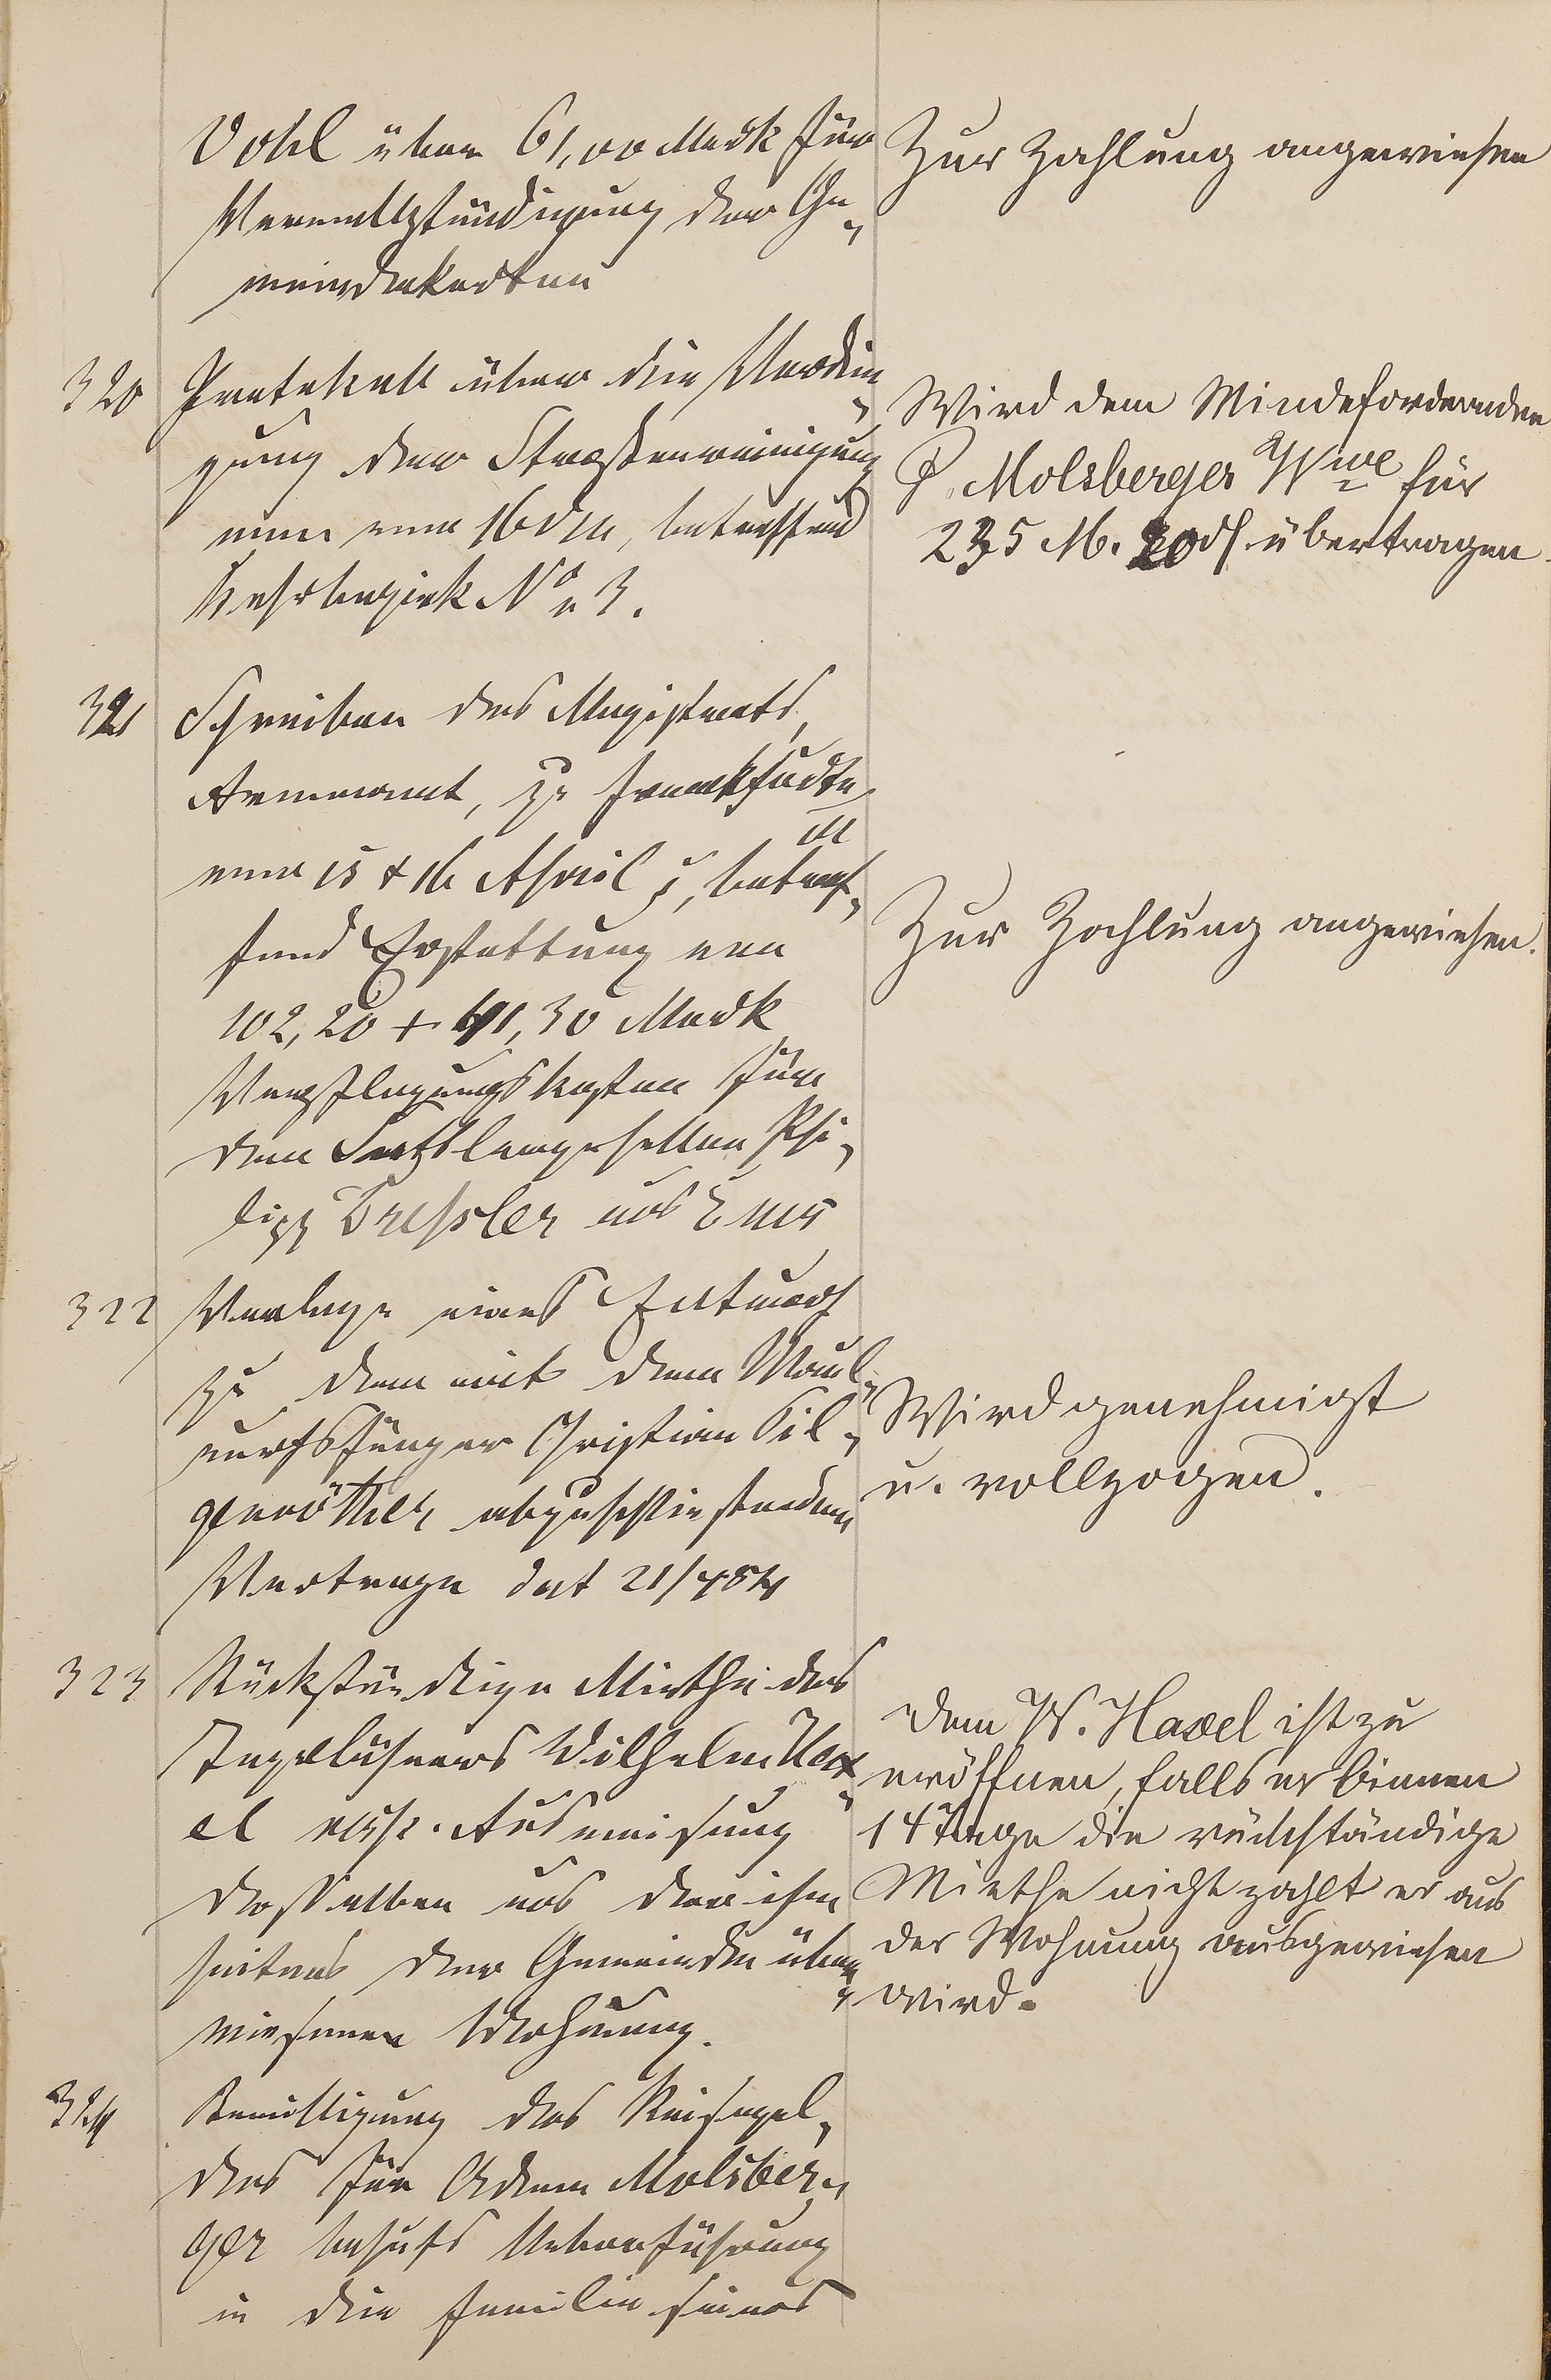 Vohl über 61,00 Mark für
Vervollständigung der Ge-
meindekarten
Zur Zahlung angewiesen
320 Protokoll über die Verdin-
gung der Straßenreinigung
vom 16 d M, betreffend
Kehrbezirk No 3.
Wird dem Mindefordernden
P. Molsberger Wwe für
235 M. 20 d. übertragen.
321 Schreiben des Magistrats,
Armenamt, zu Frankfurt
vom 15 & 16 April, betref-
fend Erstattung von
102,20 + 41,30 Mark
Verpflegungskosten für
den Phi-
lipp Bressler aus Ems
Zur Zahlung angewiesen.
322 Vorlage eines Entwurfs
zu dem mit dem Maul-
wurfsfänger Christian Sil-
genröther abzuschließenden
Vertrage dat 21/4 84
Wird genehmigt
u. vollzogen.
323 Rückständige Miethe des
Tagelöhners Wilhelm Hax-
el resp. Ausweisung
desselben aus der ihm
seitens der Gemeinde über-
wiesenen Wohnung.
Dem W. Haxel ist zu
eröffnen, falls er binnen
14 Tage die rückständige
Miethe nicht zahlt er aus
der Wohnung ausgewiesen
wird.
324 Bewilligung des Reisegel-
des für Adam Molsber-
ger behufs Ueberführung
in die Familie seines